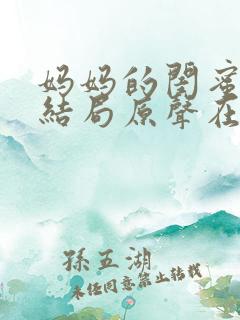 妈妈的閨蜜
結局原聲在
孫五湖
未经同意禁止转载